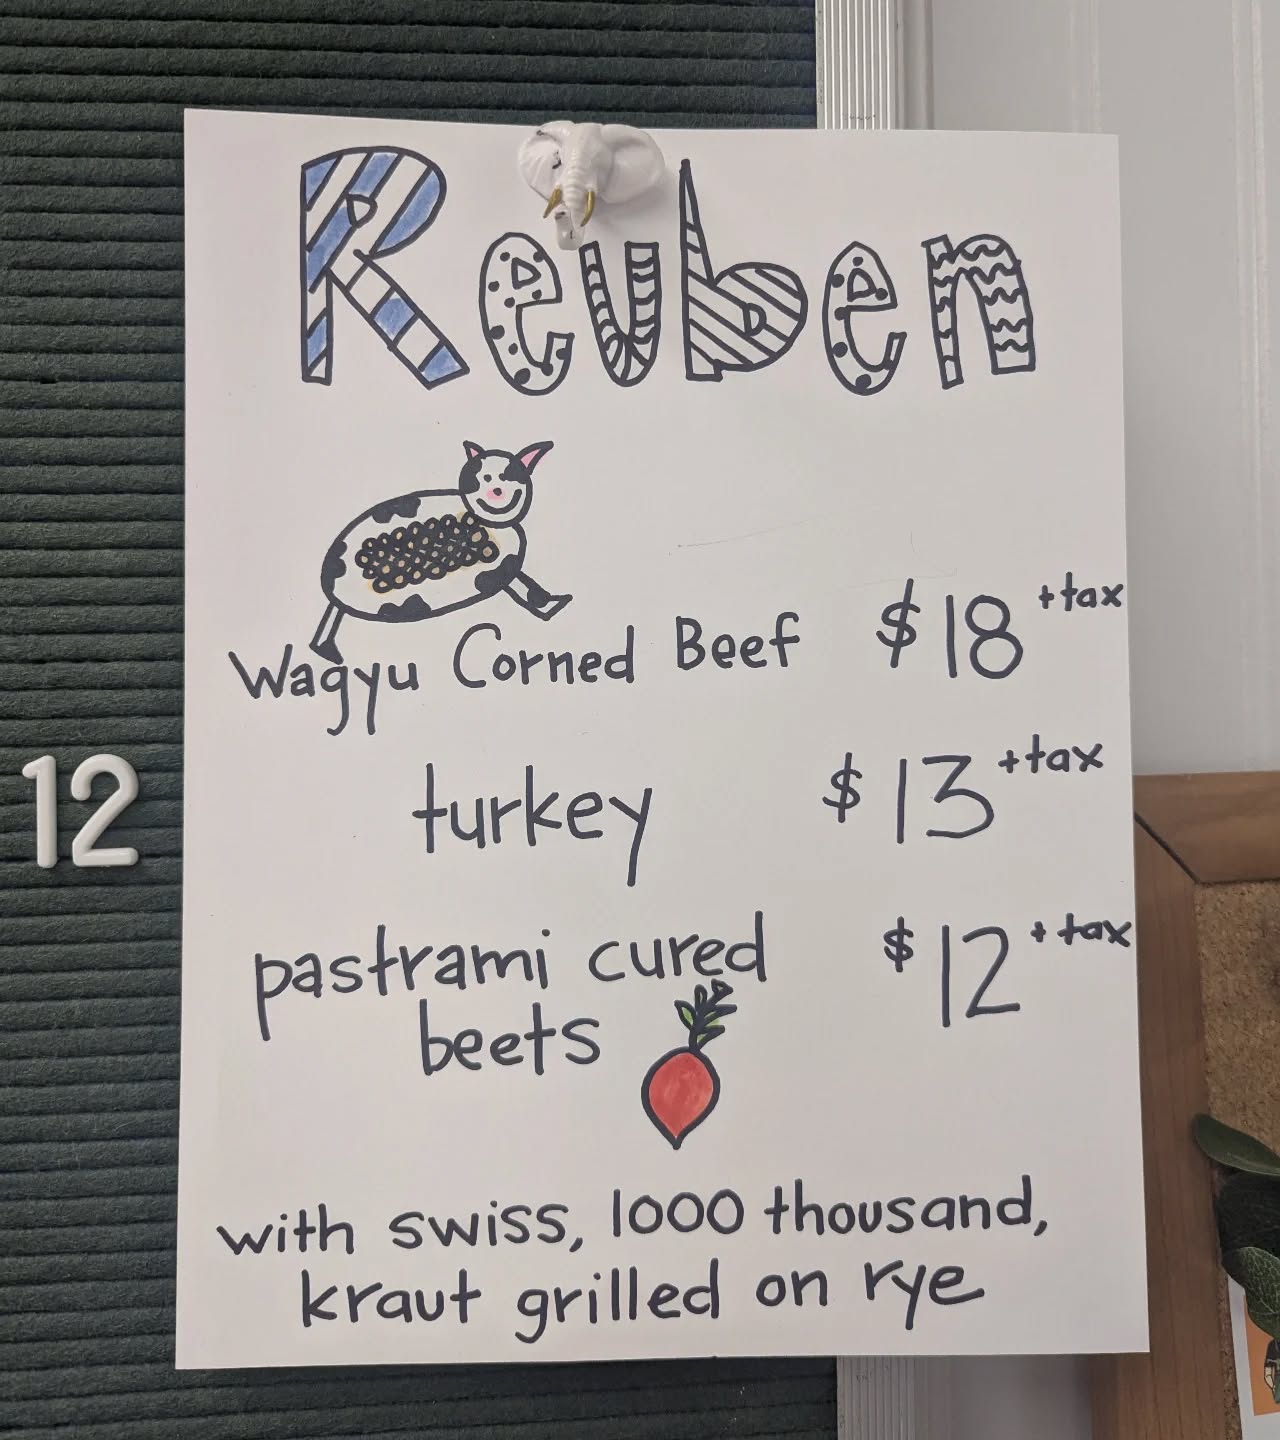 Reuben
Wagyu Corned Beef $18 +tax
turkey $13 +tax
12
pastrami cured $12 +tax
beets
with swiss, 1000 thousand,
kraut grilled on rye